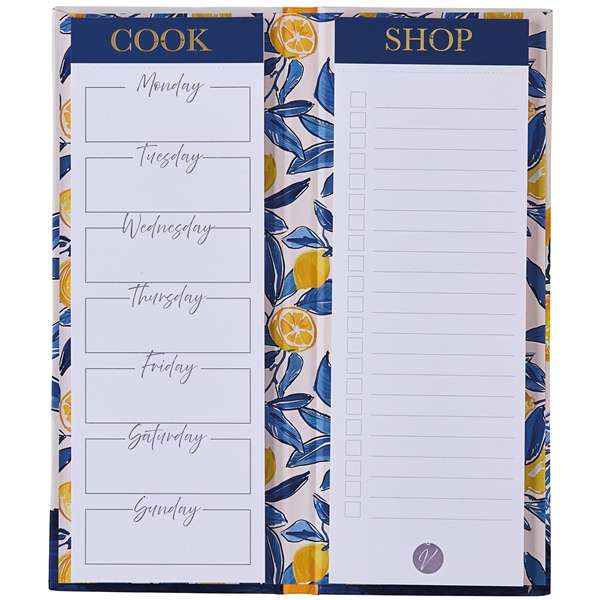 COOK
Monday
Tuesday
Wednesday
Thursday
Friday
Saturday
Sunday
SHOP
V